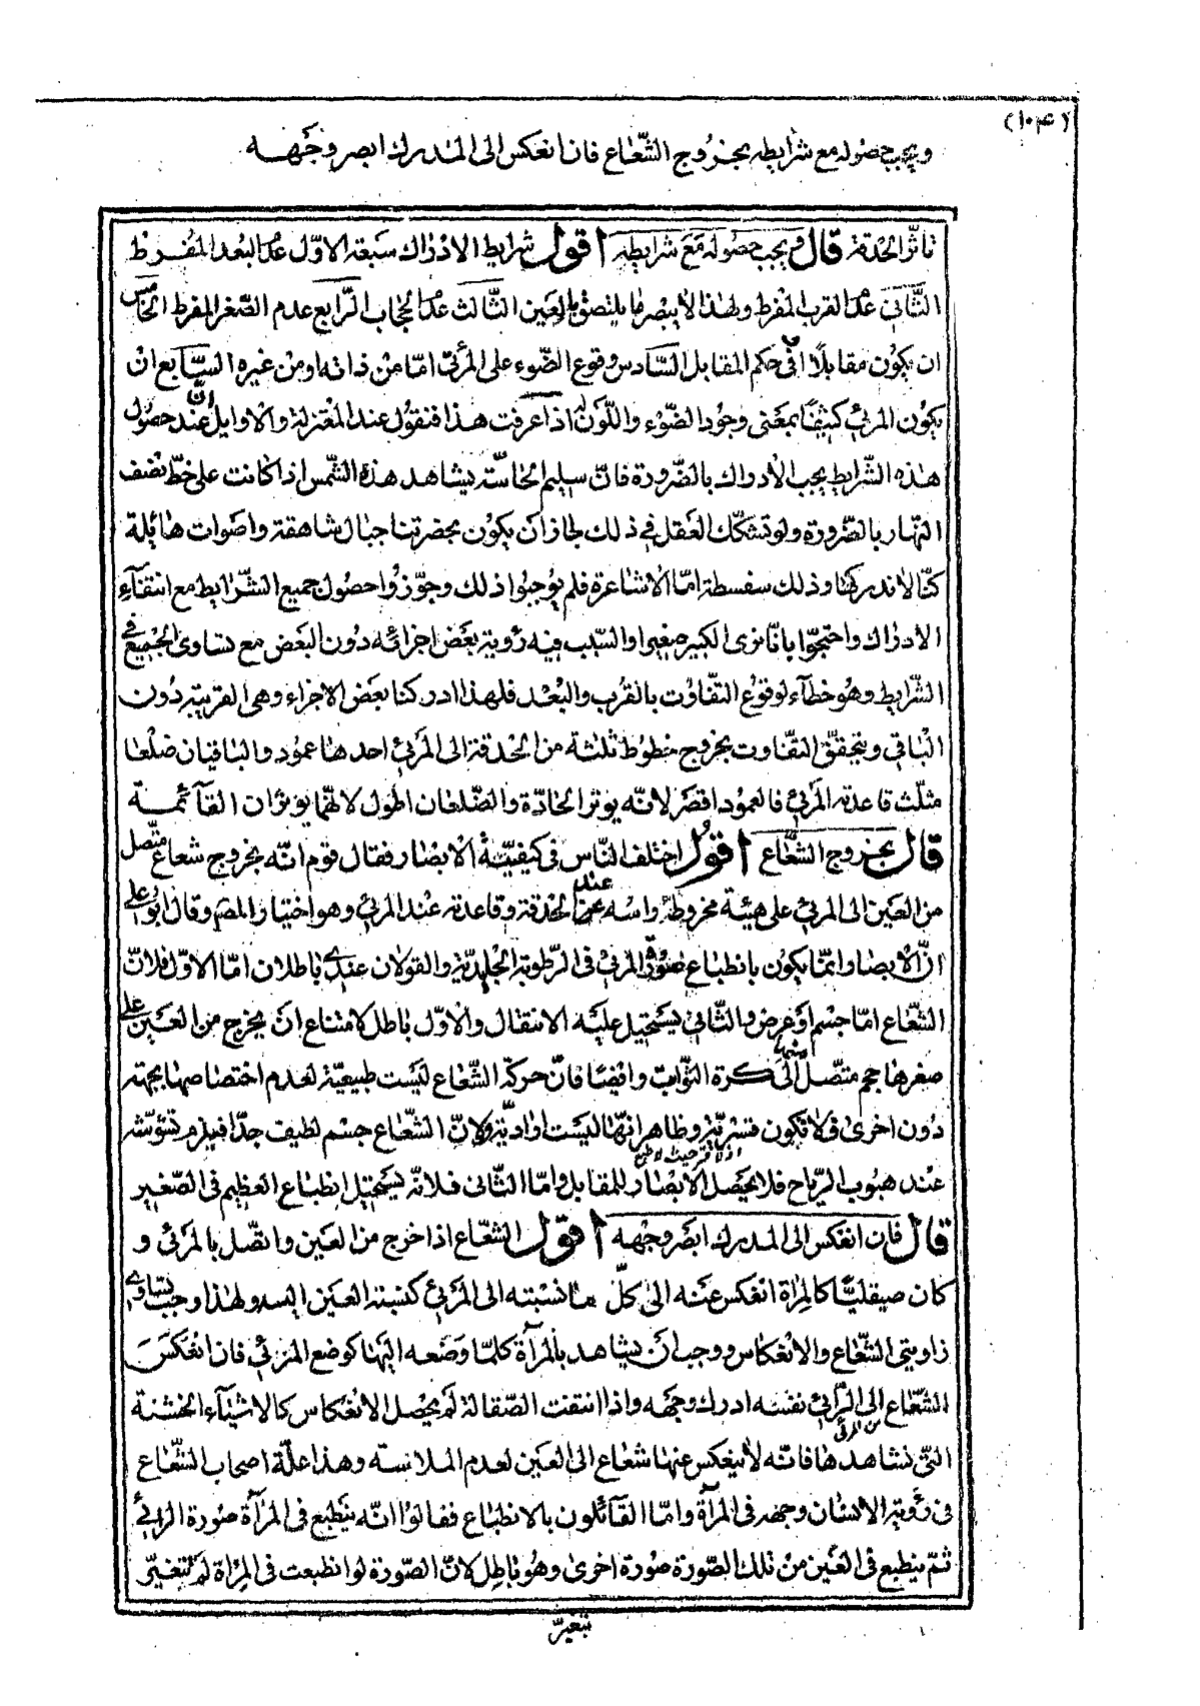 (١٠۴)
ويجب حصوله مع شرايطه بخروج الشّعاع فان انعكس الى المدرك ابصر وجهه
تاثّر الحدقة قال ويجب حصوله مع شرايطه اقول شرايط الادراك سبعة الاوّل عدم البعد المفرط
الثّاني عدم القرب المفرط ولهذا لا يبصر ما يلتصق بالعين الثّالث عدم الحجاب الرّابع عدم الصّغر المفرط الخامس
ان يكون مقابلًا او فى حكم المقابل السّادس وقوع الضّوء على المرئىّ امّا من ذاته او من غيره السّابع ان
يكون المرئى كثيفًا بمعنى وجود الضّوء واللّون له اذا عرفت هذا فنقول عند المعتزلة والاوايل ان عند حصول
هذه الشّرايط يجب الادراك بالضّرورة فانّ سليم الحاسّة يشاهد هذه الشّمس اذا كانت على خطّ نصف
النّهار بالضّرورة ولو تشكّك العقل فى ذلك لجاز ان يكون بحضرتنا جبال شاهقة واصوات هايلة
كنّا لا ندركها وذلك سفسطة امّا الاشاعرة فلم يوجبوا ذلك وجوّزوا حصول جميع الشّرايط مع انتفآء
الادراك واحتجّوا بانّا نرى الكبير صغيرا والسّبب فيه رؤية بعض اجزائه دون البعض مع تساوى الجميع فى
الشّرايط وهو خطآء لوقوع التّفاوت بالقرب والبعد فلهذا ادركنا بعض الاجزاء وهى القريبة دون
الباقى ويتحقّق التّفاوت بخروج خطوط ثلثة من الحدقة الى المرئى احدها عمود والباقيان ضلعا
مثلّث قاعدته المرئى فالعمود اقصر لانّه يوتر الحادّة والضّلعان اطول لانّهما يوتران القآئمة
قال بخروج الشّعاع اقول اختلف النّاس فى كيفيّة الابصار فقال قوم انّه بخروج شعاع متّصل
من العين الى المرئى على هيئة مخروط راسه عند الحدقة وقاعدته عند المرئى وهو اختيار المصه وقال ابو على
انّ الابصار انّما يكون بانطباع صورة المرئى فى الرّطوبة الجليديّة والقولان عندى باطلان امّا الاوّل فلانّ
الشّعاع امّا جسم او عرض والثّانى يستحيل عليه الانتقال والاوّل باطل لامتناع ان يخرج من العين على
صغرها جسم متّصل منها الى كرة الثّوابت وايضا فانّ حركة الشّعاع ليست طبيعيّة لعدم اختصاصها بجهة
دون اخرى فلا تكون قسريّة وظاهر انّها ليست اراديّة ولانّ الشّعاع جسم لطيف جدّا فيلزم تشوّشه
عند هبوب الرّياح فلا يحصل الابصار للمقابل وامّا الثّانى فلانّه يستحيل انطباع العظيم فى الصّغير
قال فان انعكس الى المدرك ابصر وجهه اقول الشعاع اذا خرج من العين واتّصل بالمرئى و
كان صيقليّا كالمراة انعكس عنه الى كلّ ما نسبته الى المرئى كنسبة العين اليه ولهذا وجب تساوى
زاويتى الشّعاع والانعكاس ووجب ان يشاهد بالمرآة كلّما وضعه اليها كوضع المرئى فان انعكس
الشّعاع الى الرّائى نفسه ادرك وجهه واذا انتفت الصّقالة لم يحصل الانعكاس كالاشيآء الخشنة
التى نشاهدها فانّه لا ينعكس عنها شعاع الى العين لعدم الملاسة وهذا علّة اصحاب الشّعاع
فى رؤية الانسان وجهه فى المرآة وامّا القآئلون بالانطباع فقالوا انّه ينطبع فى المرآة صورة الرائى
ثمّ ينطبع فى العين من تلك الصّورة صورة اخرى وهو باطل لانّ الصّورة لو انطبعت فى المراة لم تتغيّر
بتغيّر